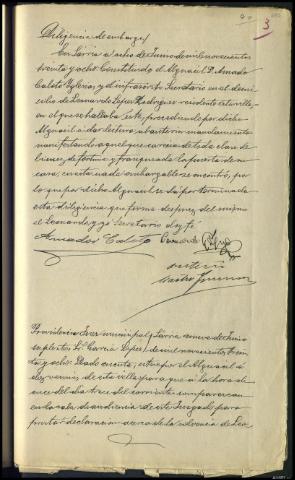 3
Diligencia de embargo/
En Sarria a ocho de Junio de mil novecientos
treinta y ocho. Constituido el Alguacil D. Amador
Calvo Iglesias, y el infrascrito Secretario en el domi-
cilio de Leonardo López Rodríguez residente en
en el que se hallaba este, precediendo por dicho
Alguacil a dar lectura al anterior mandamiento
manifestando aquel que carecia de toda clase de
bienes, de fortuna y franqueada la puerta de su
casa, en esta nada embargable se encontró, por
lo que por dicho Alguacil se da por terminada
esta diligencia que firma despues del mismo
el Leonardo, y yo Secretario doy fe.
Amador Calvo Leonardo López
ante mi
Providencia Juez municipal/ Sarria nueve de Junio
suplente Sr. García López/ de mil novecientos trein-
ta y ocho. Dado cuenta; citese por el Alguacil a
dos vecinos de esta villa para que a la hora de
once del dia trece del corriente comparezcan
en la sala de audiencia de este Juzgado para
prestar declaración acerca de la solvencia de Leo-